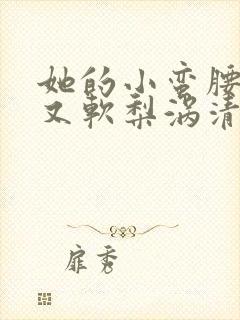 她的小蛮腰
又軟梨涡清
扉秀